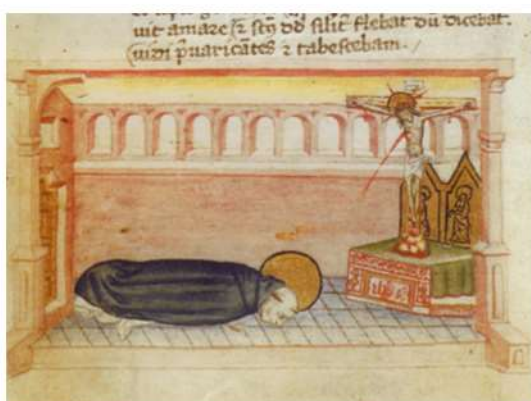 uit amare ⁊ scūs dd̄ silit̄ flebat dū dicebat.
uidi p̄uaricātes ⁊ tabescebam.